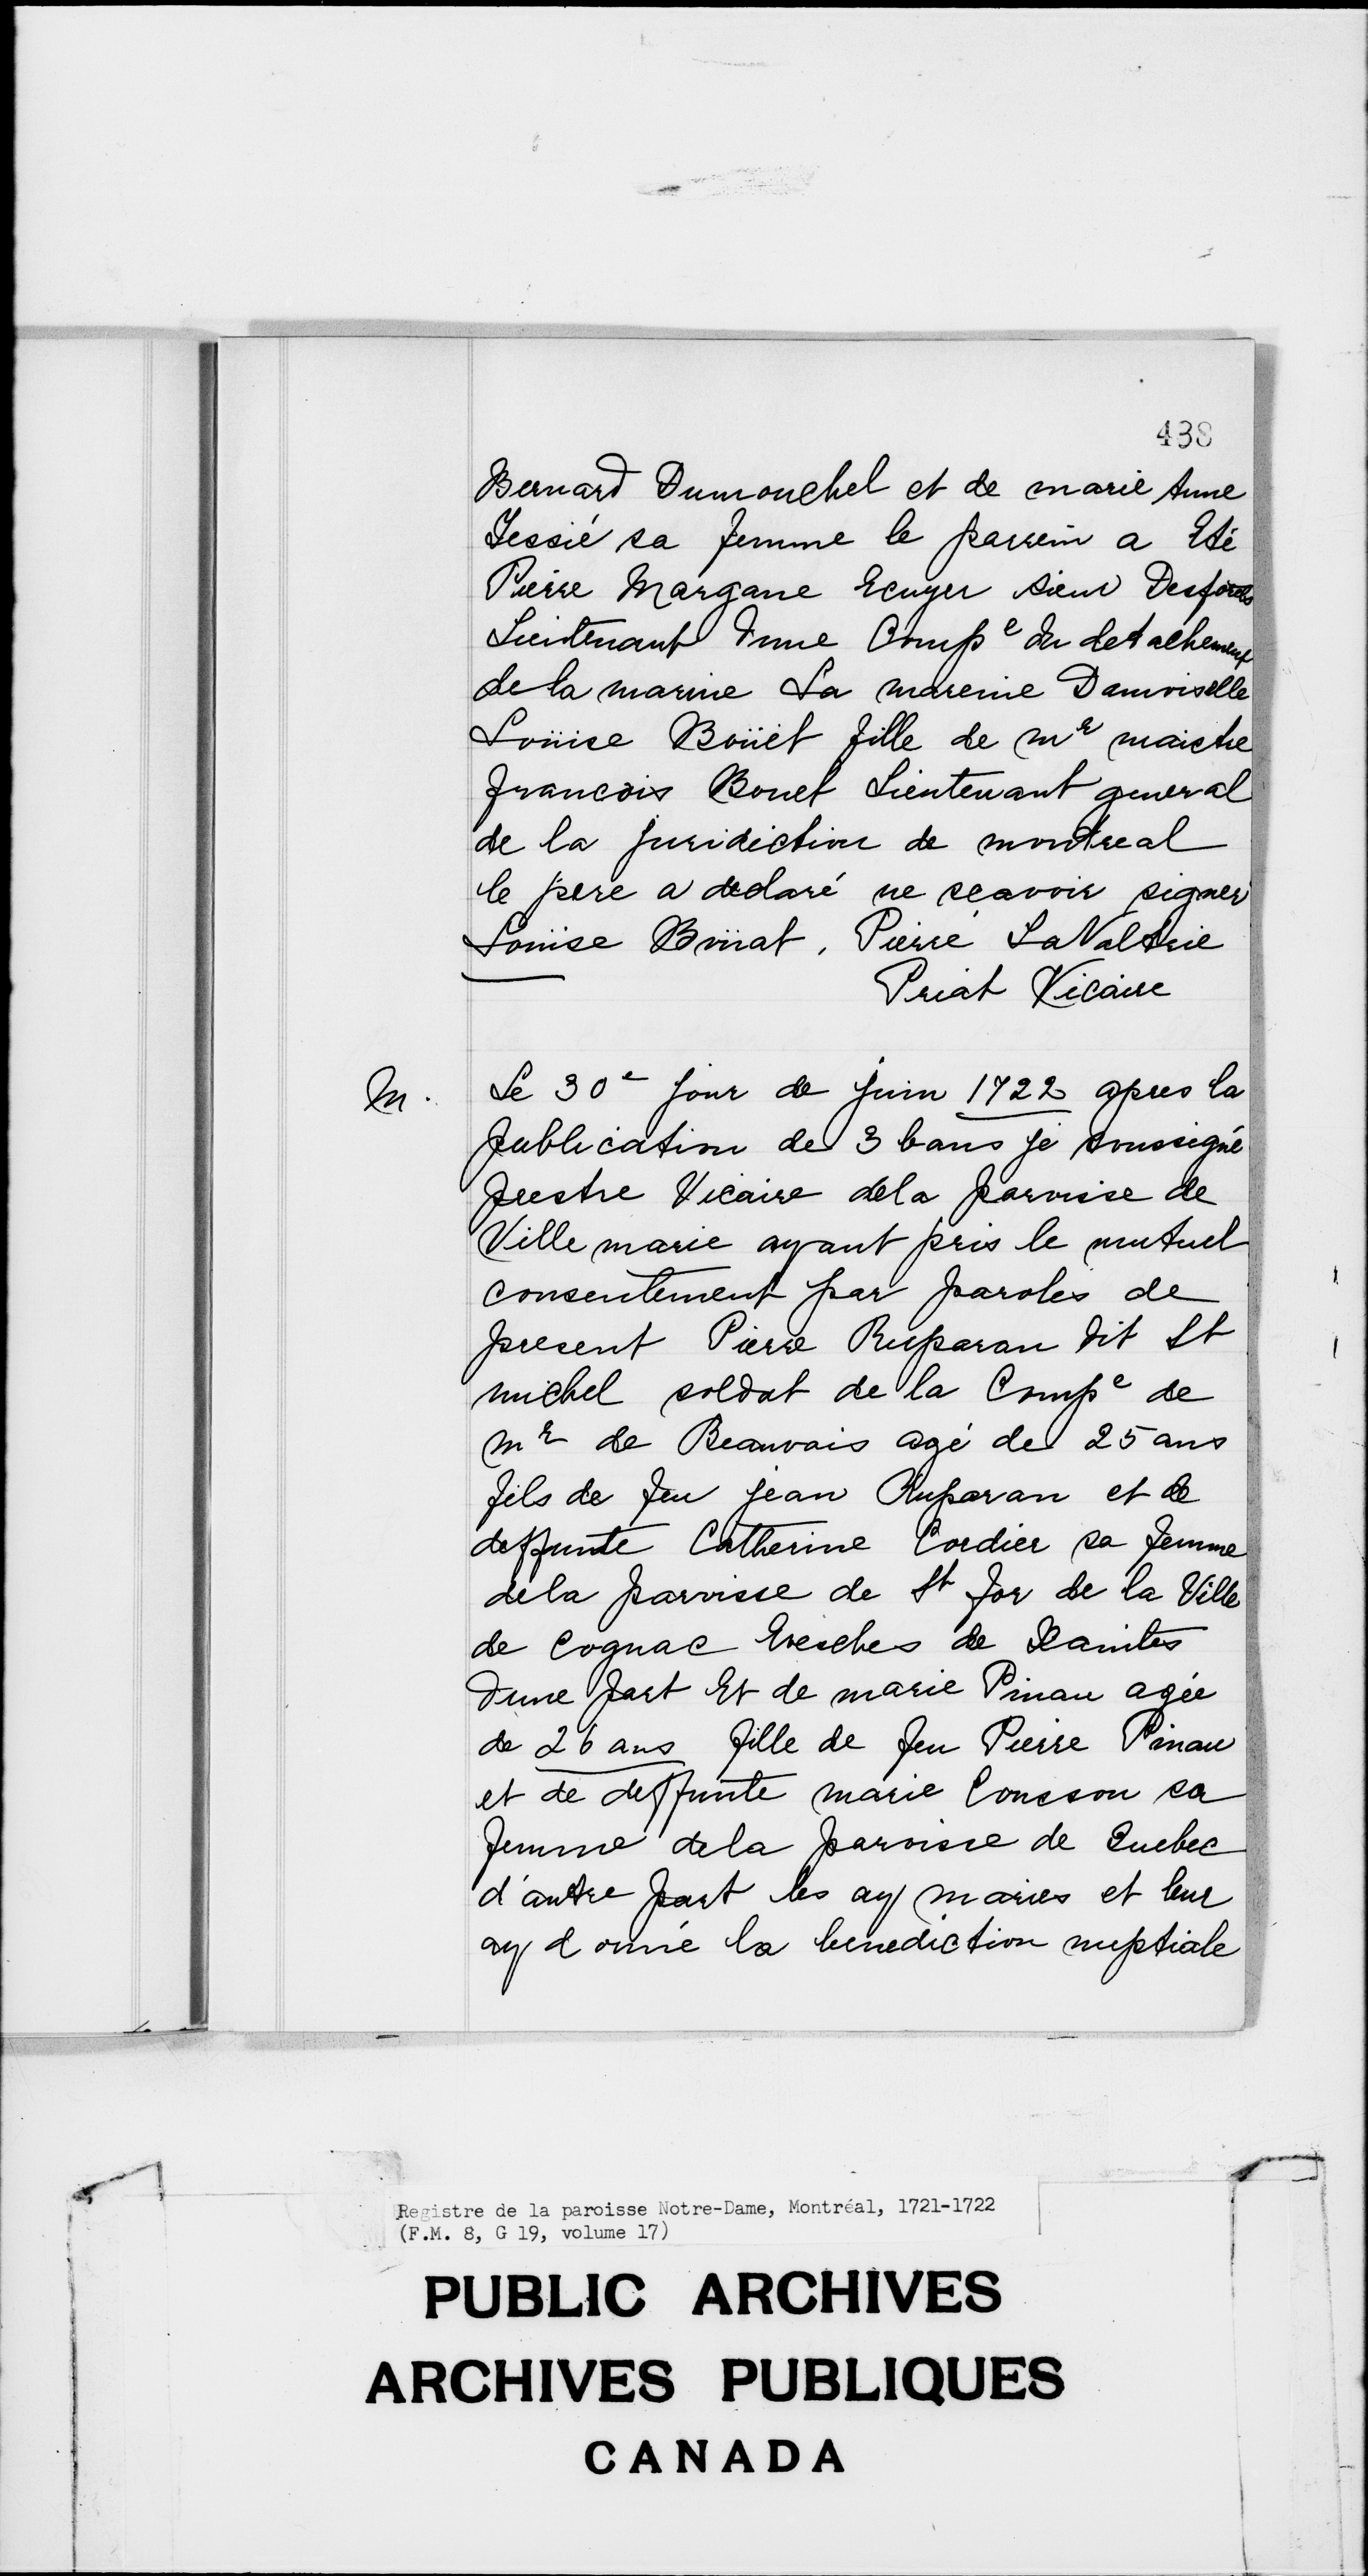 438
Bernard Dumouchel et de marie Anne
Tessié sa femme le parrein a Eté
Pierre Margane Ecuyer sieur Desforets
Lieutenant dune Compe du detachement
de la marine La mareine Damoiselle
Loüise Boüet fille de mr maistre
francois Bouet Lieutenant general
de la juridiction de montreal
le pere a declaré ne scavoir signer
Louise Boüat, Pierre LaValtrie
Priat Vicaire
M. Le 30e jour de juin 1722 apres la
publication de 3 bans je soussigné
prestre Vicaire dela paroisse de
Ville marie ayant pris le mutuel
consentement par paroles de
present Pierre Ruparan dit St
michel soldat de la Compe de
mr de Beauvais agé de 25 ans
fils de feu jean Ruparan et de
deffunte Catherine Cordier sa femme
dela paroisse de St for de la Ville
de Cognac Evesches de Xaintes
dune part Et de marie Pinau agée
de 26 ans fille de feu Pierre Pinau
et de deffunte marie Cousson sa
femme dela paroisse de Quebec
d'autre part les ay mariés et leur
ay donné la benediction nuptiale
Registre de la paroisse Notre-Dame, Montréal, 1721-1722
(F.M. 8, G 19, volume 17)
PUBLIC ARCHIVES
ARCHIVES PUBLIQUES
CANADA